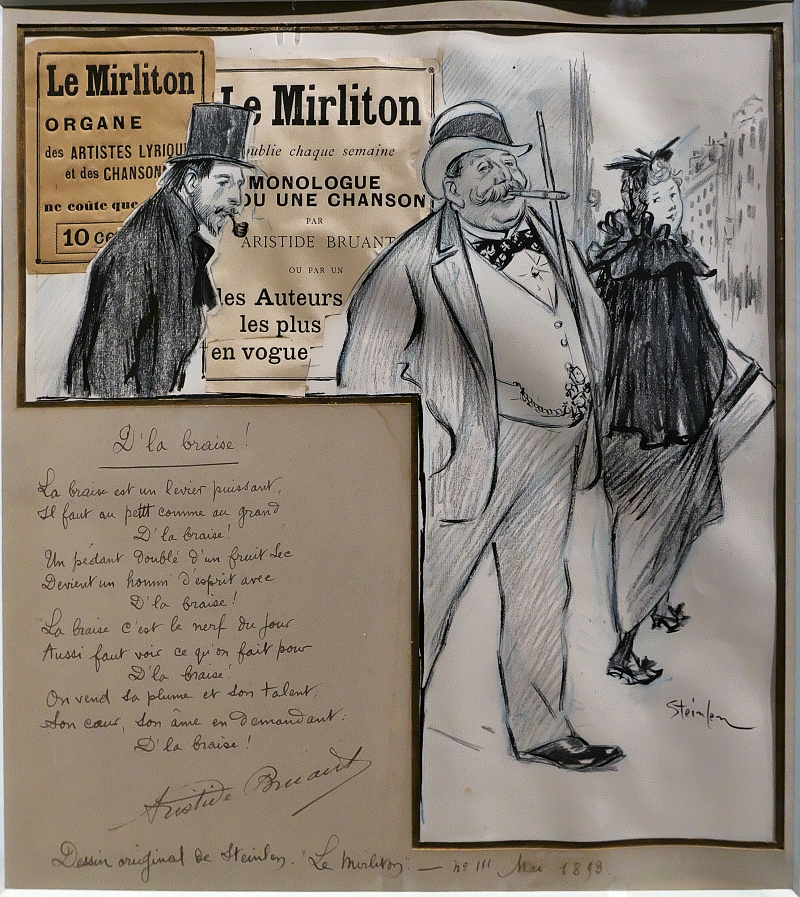 Le Mirliton
ORGANE
des ARTISTES LYRIQU
et des CHANSONN
ne coûte que
10 ce
Le Mirliton
publie chaque semaine
MONOLOGUE
OU UNE CHANSON
PAR
ARISTIDE BRUANT
OU PAR UN
des Auteurs
les plus
en vogue
D'la braise !
La braise est un levier puissant,
Il faut au petit comme au grand
D'la braise !
Un pédant doublé d'un fruit sec
Devient un homm' d'esprit avec
D'la braise !
La braise c'est le nerf du jour
Aussi faut voir ce qu'on fait pour
D'la braise !
On vend sa plume et son talent,
Son cœur, son âme en demandant :
D'la braise !
Aristide Bruant
Steinlen
Dessin original de Steinlen. "Le Mirliton" — no 111 Mai 1893.